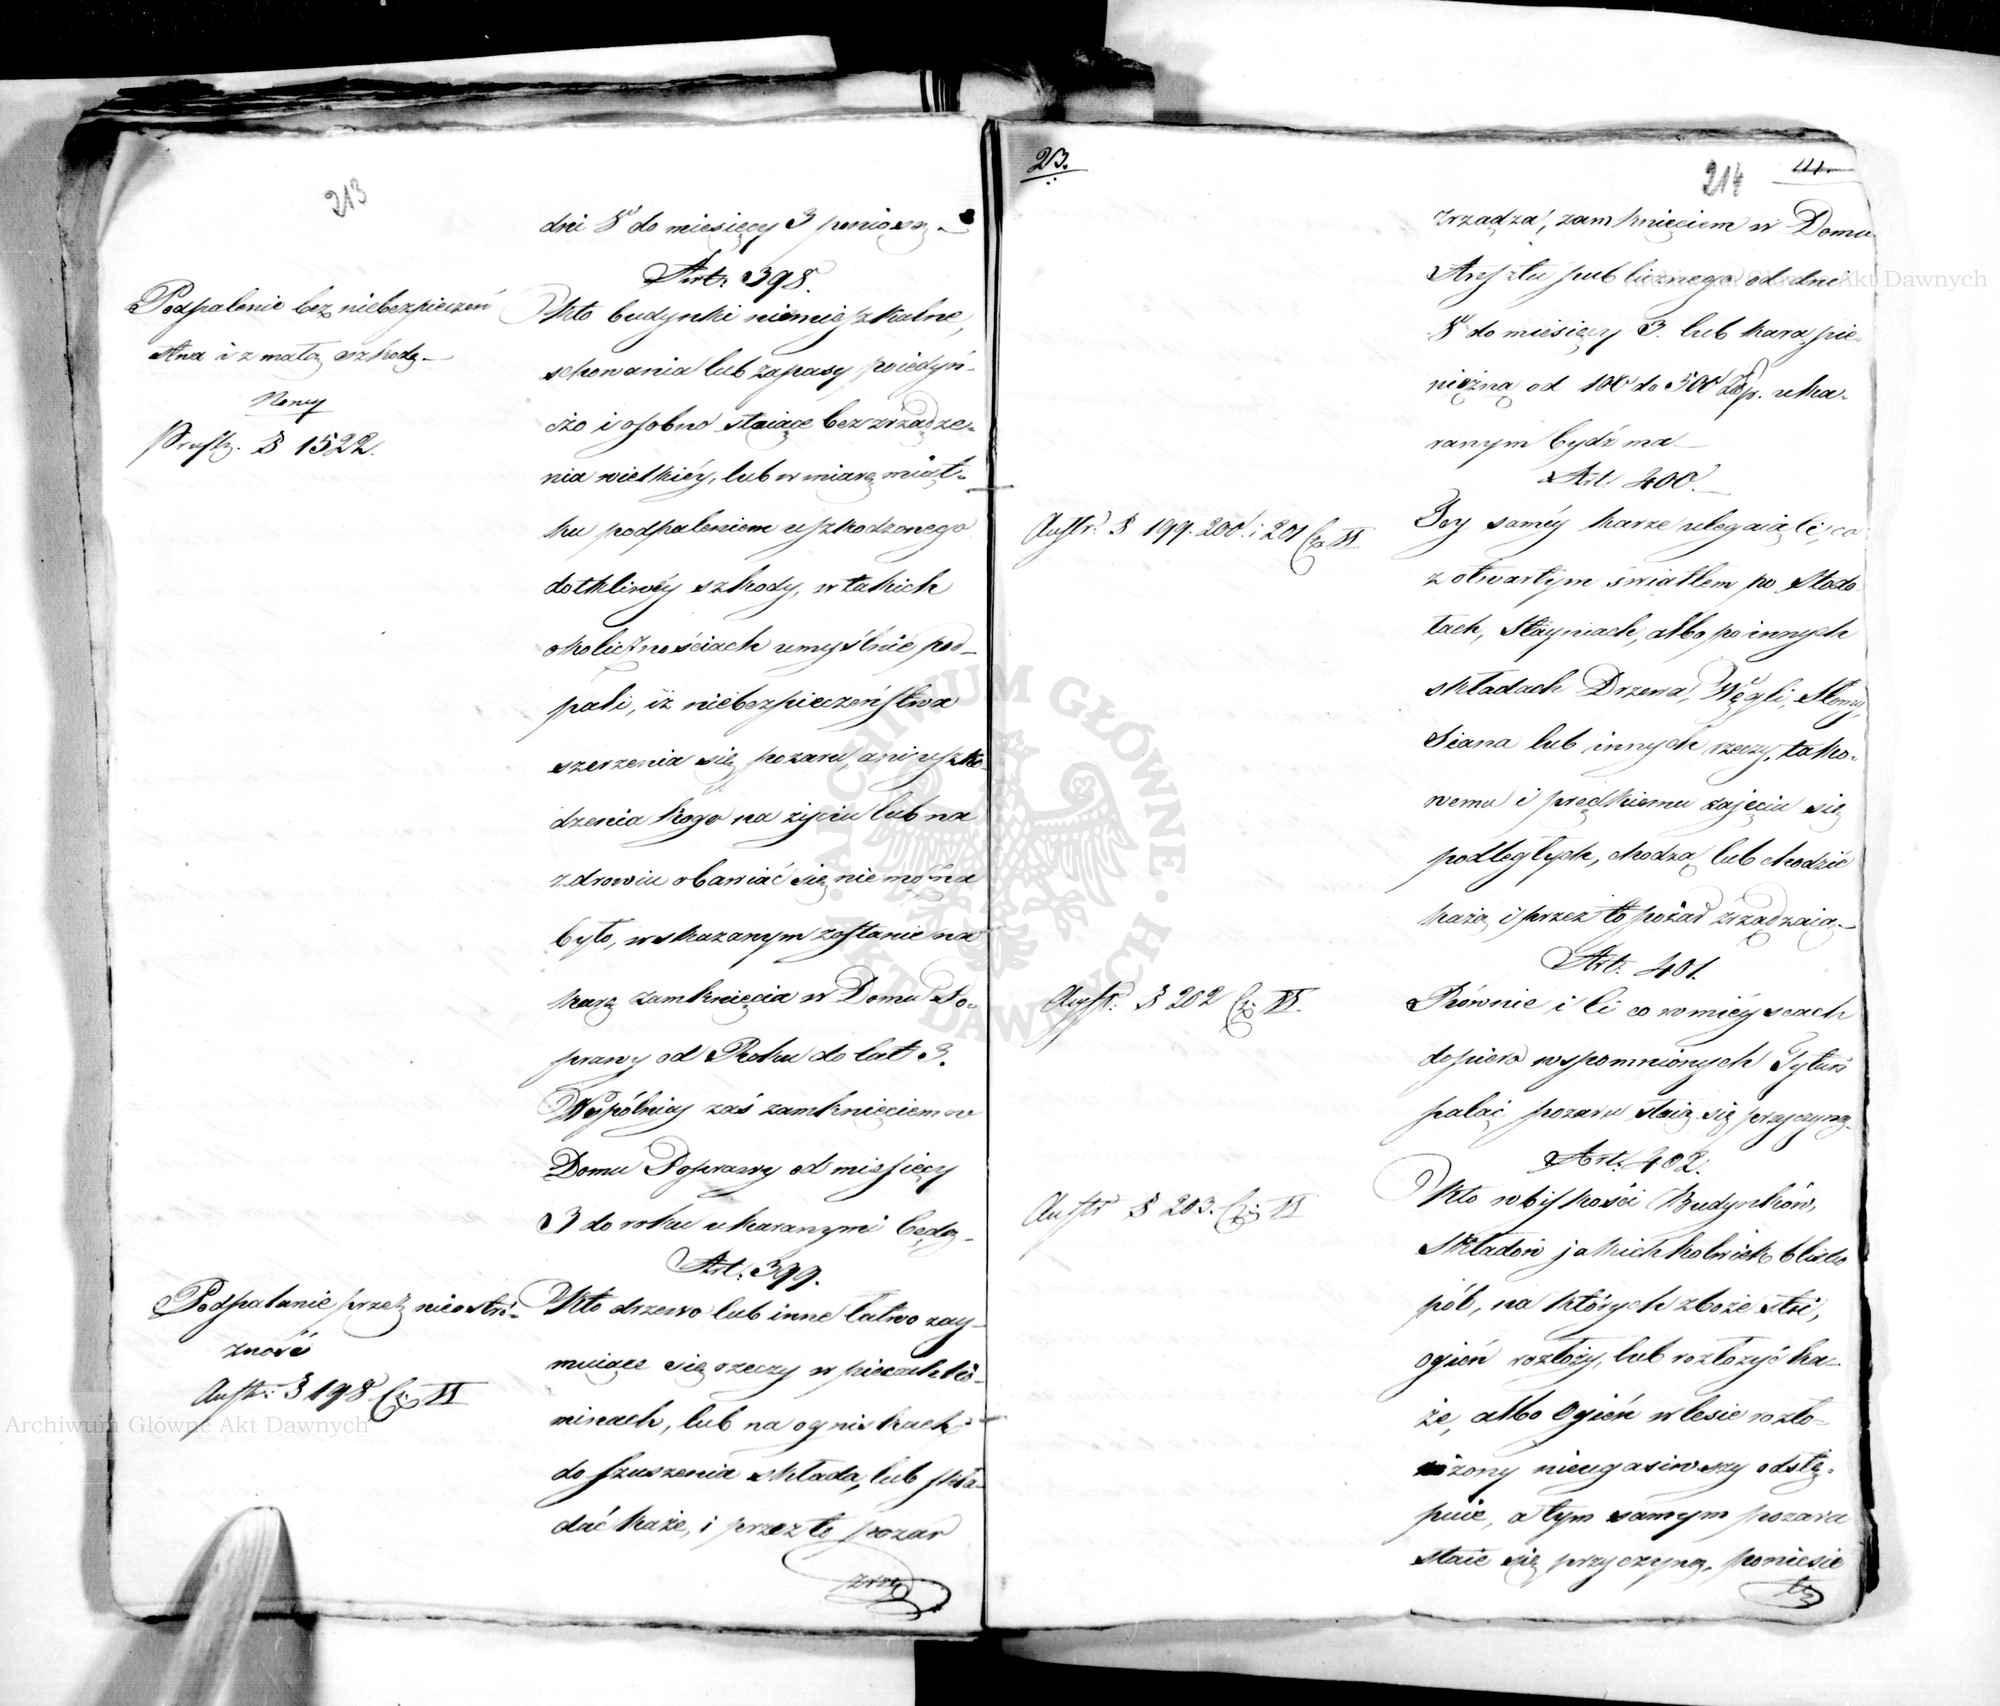 213
dni 8 do miesięcy 3 poniosą.
Art. 398.
Podpalenie bez niebezpieczeń
stwa i z małą szkodą
Nowy
Prusk. § 1522.
Kto budynki niemieszkalne,
schowania lub zapasy poiedyń-
czo i osobno staiące bez zrządze-
nia wielkiéy, lub w miarę maiąt-
ku podpaleniem uszkodzonego
dotkliwéy szkody, w takich
okolicznościach umyślnie pod-
pali, iż niebezpieczeństwa
szerzenia się pożaru, ani uszko-
dzenia kogo na życiu lub na
zdrowiu obawiać się nie można
było, wskazanym zostanie na
karę zamknięcia w Domu Po-
prawy od Roku do lat 3.
Wspólnicy zaś zamknięciem w
Domu Poprawy od miesięcy
3 do roku ukaranymi będą.
Art. 399.
Podpalenie przez nieostró-
żność
Austr: § 198 Cz: II
Kto drzewo lub inne łatwo zay-
muiące się rzeczy w piecach ko-
minach, lub na ogniskach
do suszenia składa, lub skła-
dać każe, i przez to pożar
zrzą
23.
214
zrządza, zamknięciem w Domu
Aresztu publicznego od dni
8 do miesięcy 3. lub karą pie-
niężną od 100 do 500 Złp. uka-
ranym bydź ma
Art. 400.
Austr. § 199. 200. i 201 Cz. II.
Téy saméy karze ulegaią ci, co
z otwartym światłem po Stodo
łach, Stayniach, albo po innych
składach Drzewa, Węgli, Słomy,
Siana lub innych rzeczy, łatwo-
wemu i prędkiemu zajęciu się
podległych, chodzą lub chodzić
każą i przez to pożar zrządzaią.
Art. 401.
Austr. § 202 Cz. II.
Równie i ci co w miéyscach
dopiero wspomnionych Tytuń
paląc, pożaru staią się przyczyną.
Art. 402.
Austr § 203. Cz: II
Kto w bliskości Budynków,
Składów jakichkolwiek blisko
pól, na których zboże stoi,
ogień rozłoży, lub rozłożyć ka-
że, albo Ogień w lesie rozło-
żony nieugasiwszy odstę-
puie, a tym samym pożaru
staie się przyczyną, poniesie
tę
ARCHIWUM GŁÓWNE AKT DAWNYCH
Archiwum Główne Akt Dawnych
Archiwum Główne Akt Dawnych